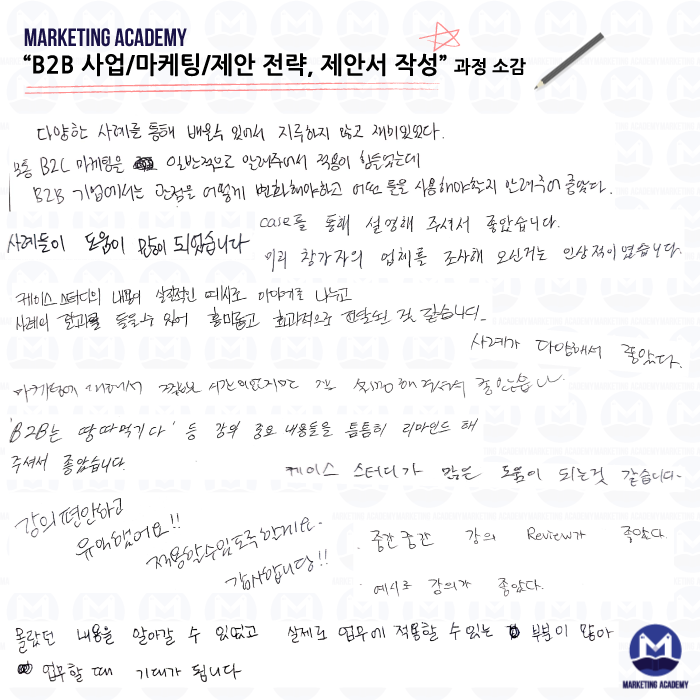 MARKETING ACADEMY
“B2B 사업/마케팅/제안 전략, 제안서 작성” 과정 소감
다양한 사례를 통해 배울수 있어서 지루하지 않고 재미있었다.
보통 B2C 마케팅을 일반적으로 알려주어서 적용이 힘들었는데
B2B 기업에서는 관점을 어떻게 변화해야하고 어떤 툴을 사용해야할지 알려주어 좋았다.
case를 통해 설명해 주셔서 좋았습니다.
사례들이 도움이 많이 되었습니다
미리 참가자의 업체를 조사해 오신거는 인상적이였습니다.
케이스 스터디의 내용이 실질적인 예시로 이야기로 나누고
사례의 결과를 들을수 있어 흥미롭고 효과적으로 전달된 것 같습니다.
사례가 다양해서 좋았다.
마케팅에 대해서 짧은 시간이었지만 설명해 주셔서 좋았습니다.
'B2B는 땅따먹기다' 등 강의 중요 내용들을 틈틈히 리마인드 해
주셔서 좋았습니다.
케이스 스터디가 많은 도움이 되는것 같습니다.
강의 편안하고
유익했어요!!
적용할수있도록 할게요.
감사합니다!!
중간중간 강의 Review가 좋았다.
예시로 강의가 좋았다.
몰랐던 내용을 알아갈 수 있었고 실제로 업무에 적용할 수 있는 부분이 많아
업무할 때 기대가 됩니다
MARKETING ACADEMY